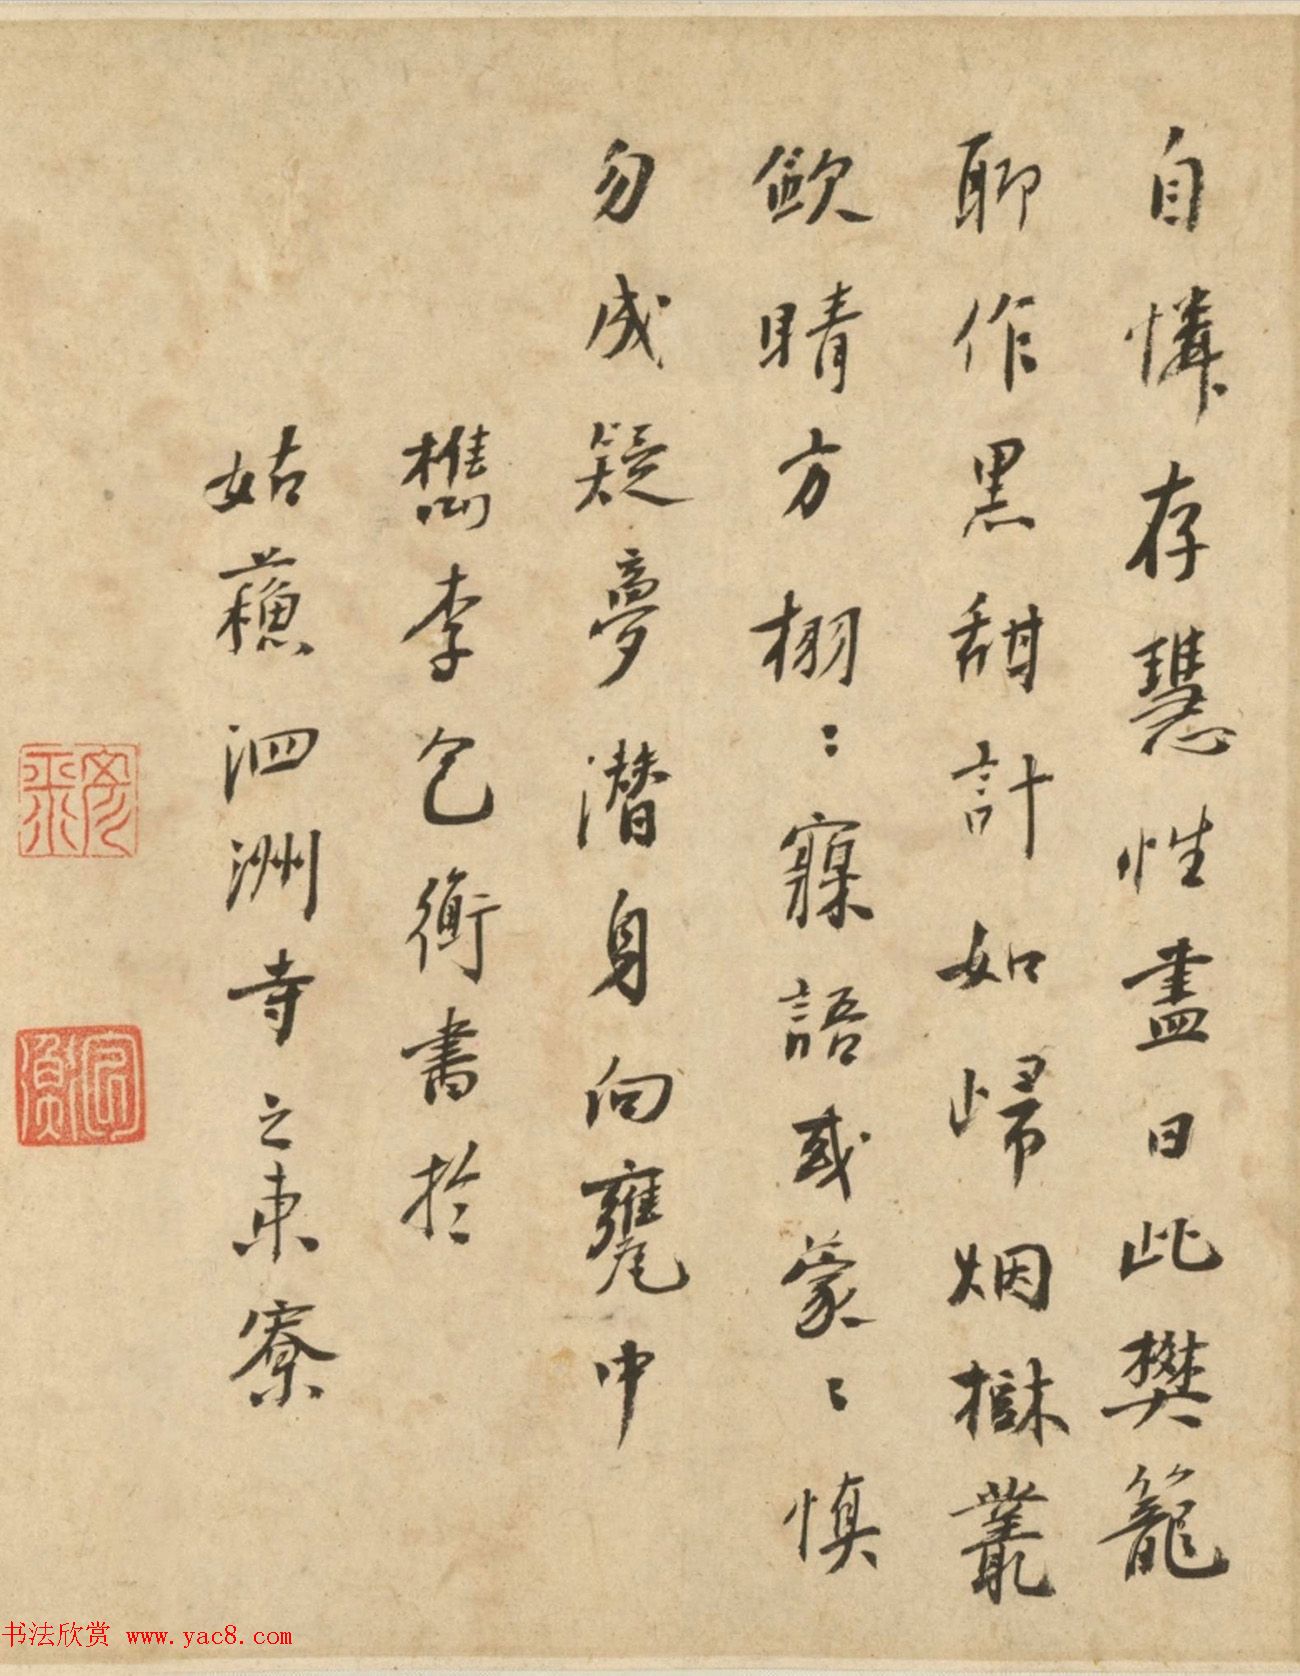 自憐存慧性盡日此樊籠
聊作黑甜計如歸烟樾叢
歛睛方栩〻寱語或蒙〻慎
勿成疑夢潛身向甕中
檇李包衡書於
姑蘓泗洲寺之東寮
书法欣赏 www.yac8.com